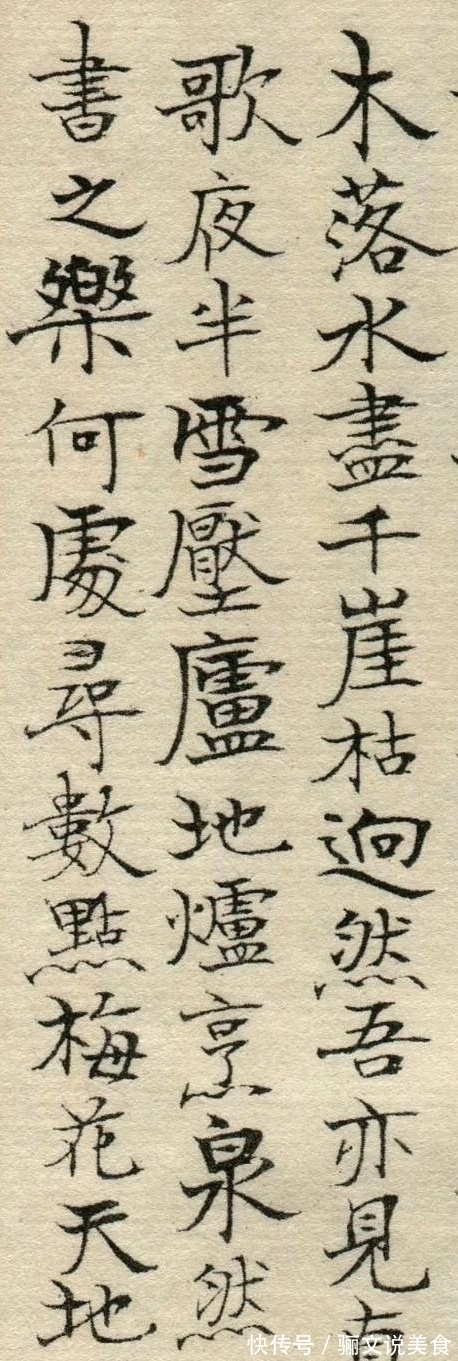 木落水盡千崖枯迥然吾亦見
歌夜半雪壓廬地爐烹泉然
書之樂何處尋數點梅花天地
快传号 / 骊文说美食